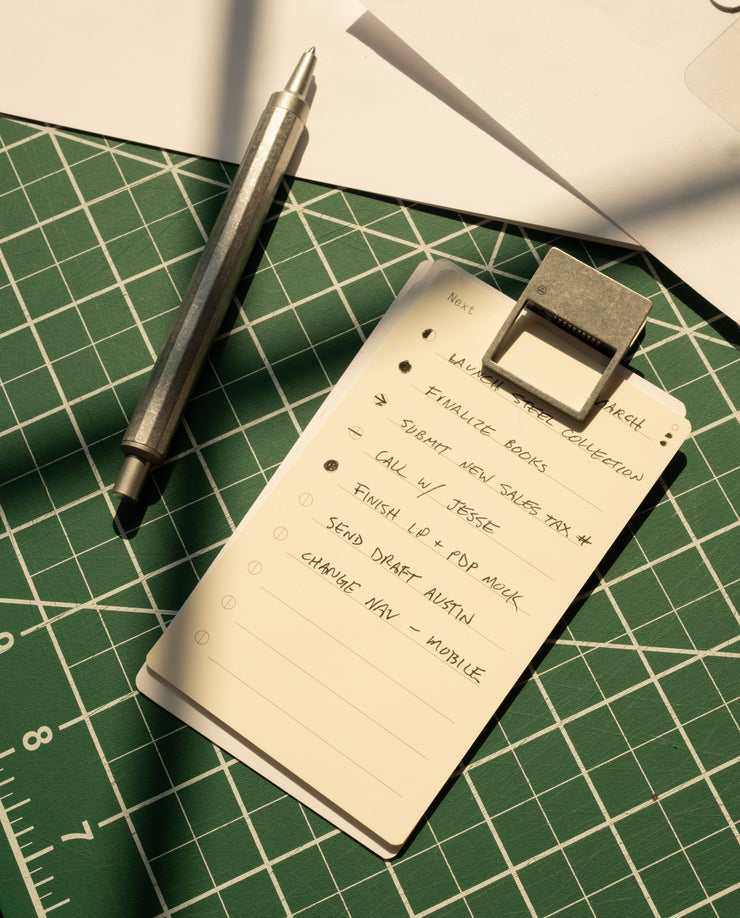 Next
ARCH
LAUNCH STEEL COLLECTION
FINALIZE BOOKS
SUBMIT NEW SALES TAX #
CALL W/ JESSE
FINISH LP + PDP MOCK
SEND DRAFT AUSTIN
CHANGE NAV - MOBILE
9
8
7